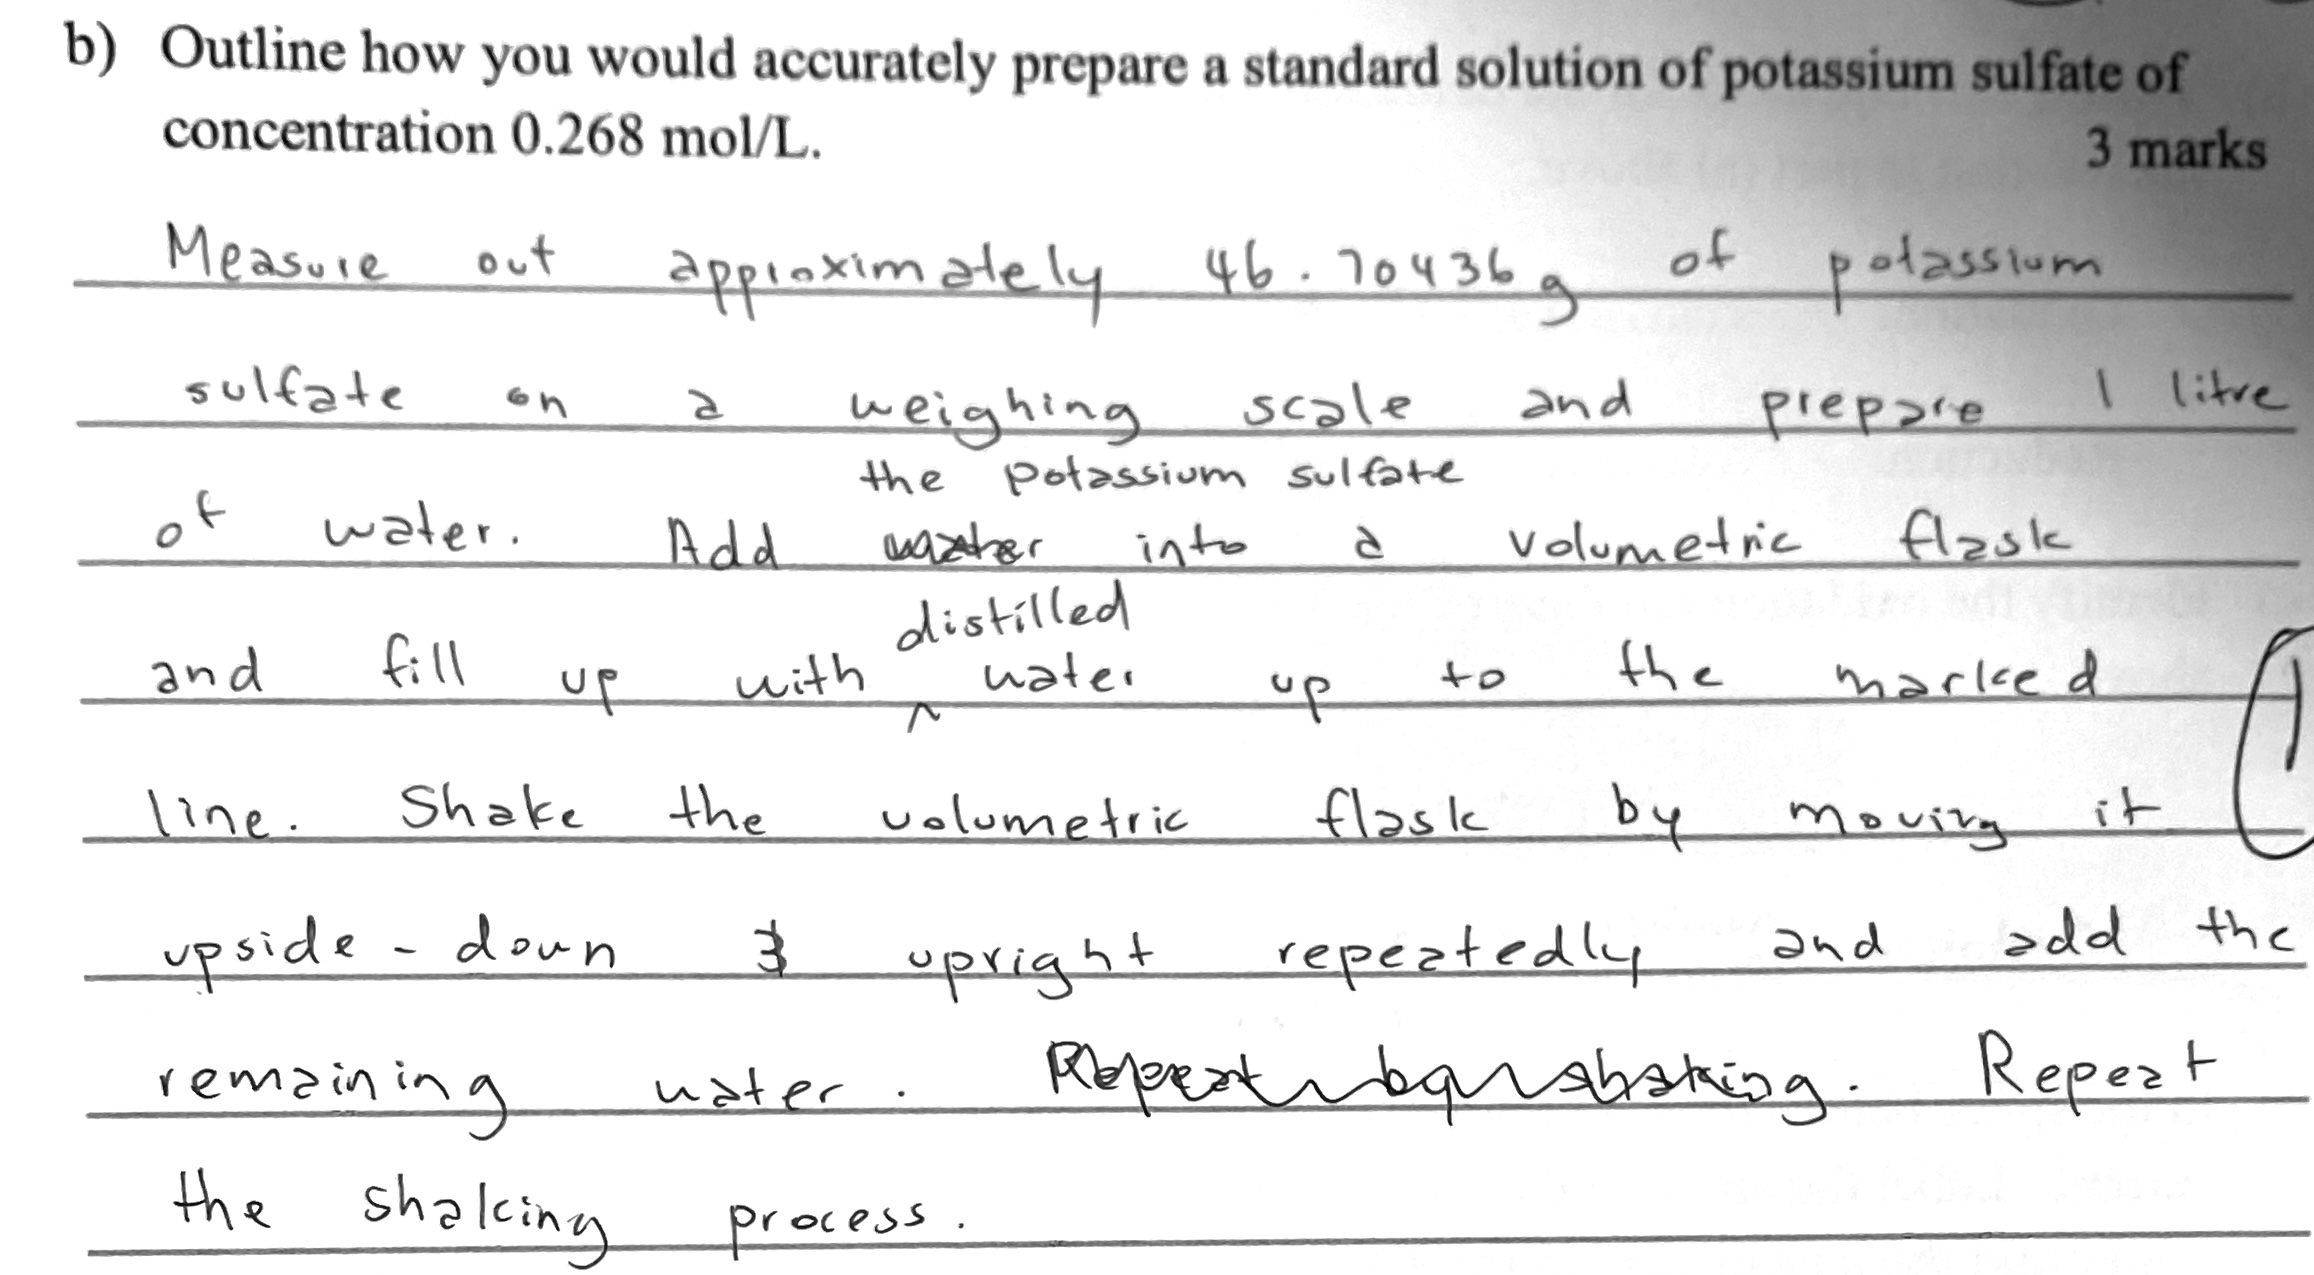 b) Outline how you would accurately prepare a standard solution of potassium sulfate of
concentration 0.268 mol/L.
3 marks
Measure out approximately 46.70436g of potassium
sulfate on a weighing scale and prepare 1 litre
the potassium sulfate
of water. Add water into a volumetric flask
distilled
and fill up with ^ water up to the marked
line. Shake the volumetric flask by moving it
1
upside-down & upright repeatedly and add the
remaining water. Repeat by shaking. Repeat
the shaking process.